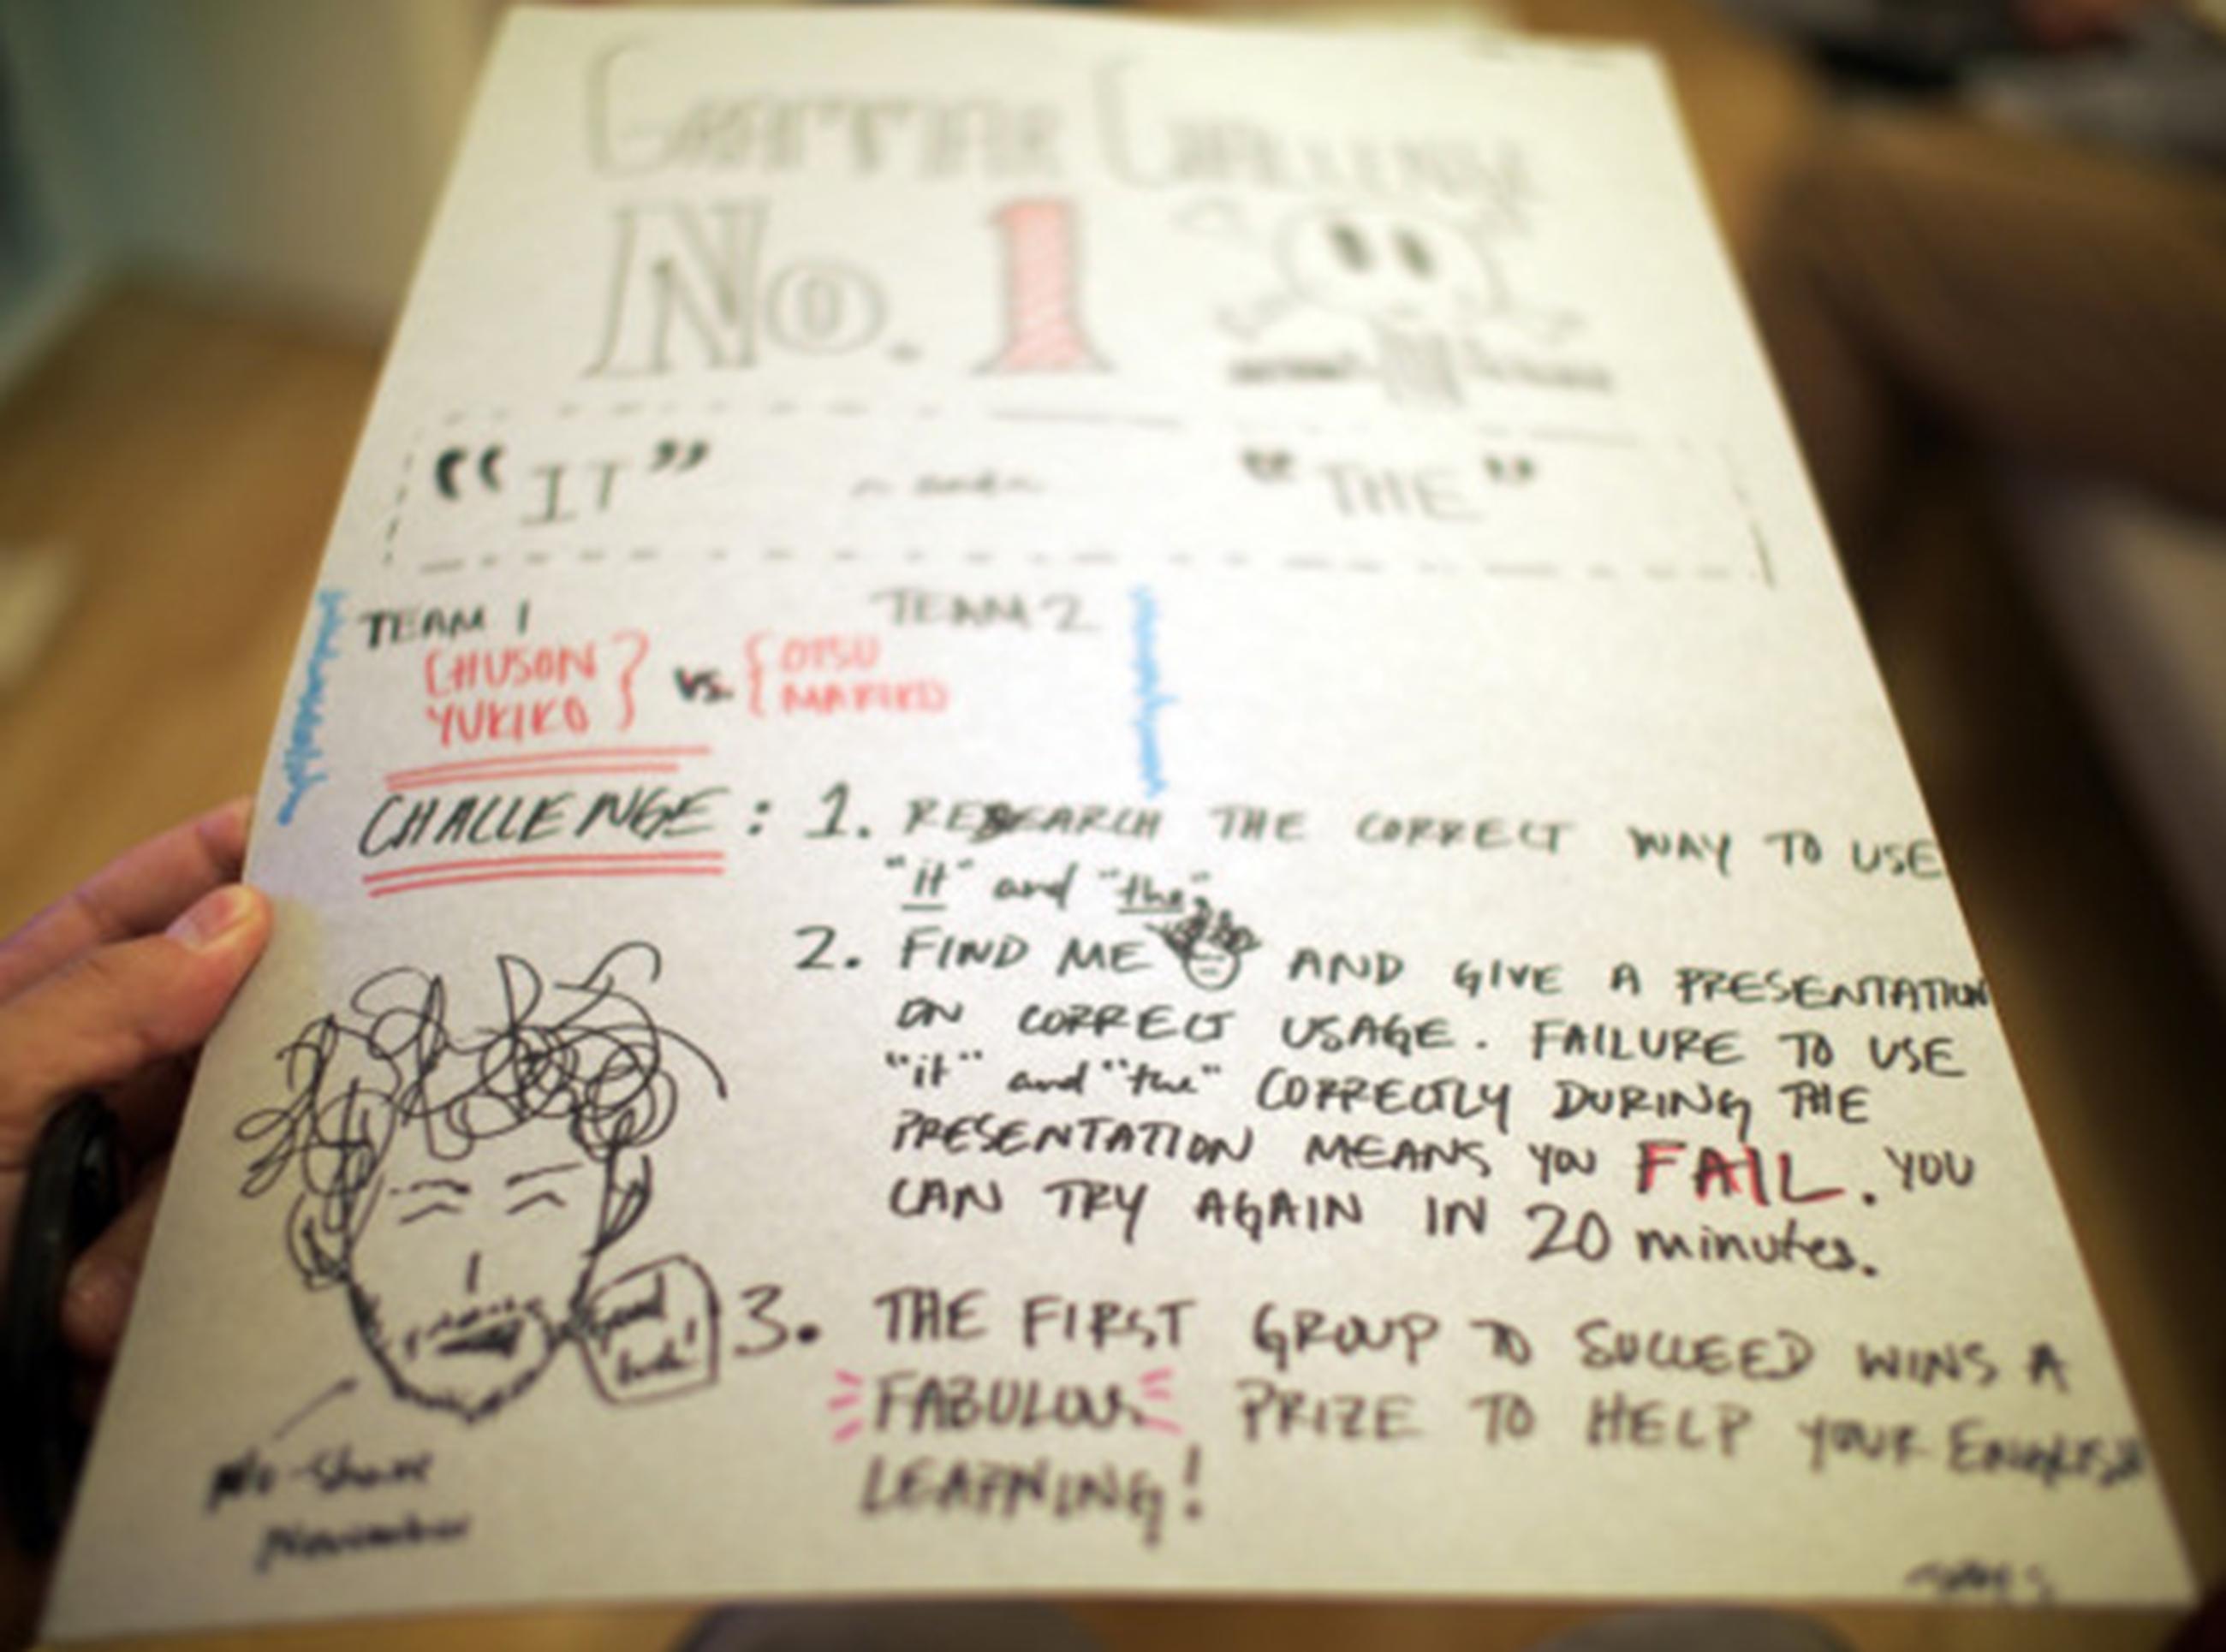 GRAMMAR CHALLENGE
No. 1
"IT" ~ and ~ "THE"
TEAM 1 TEAM 2
CHUSON } vs. { OTSU
YUKIKO MARIKO
CHALLENGE: 1. RESEARCH THE CORRECT WAY TO USE
"it" and "the".
2. FIND ME AND GIVE A PRESENTATION
ON CORRECT USAGE. FAILURE TO USE
"it" and "the" CORRECTLY DURING THE
PRESENTATION MEANS YOU FAIL. YOU
CAN TRY AGAIN IN 20 minutes.
good
luck!
3. THE FIRST GROUP TO SUCCEED WINS A
FABULOUS PRIZE TO HELP YOUR ENGLISH
LEARNING!
No-Shave
November